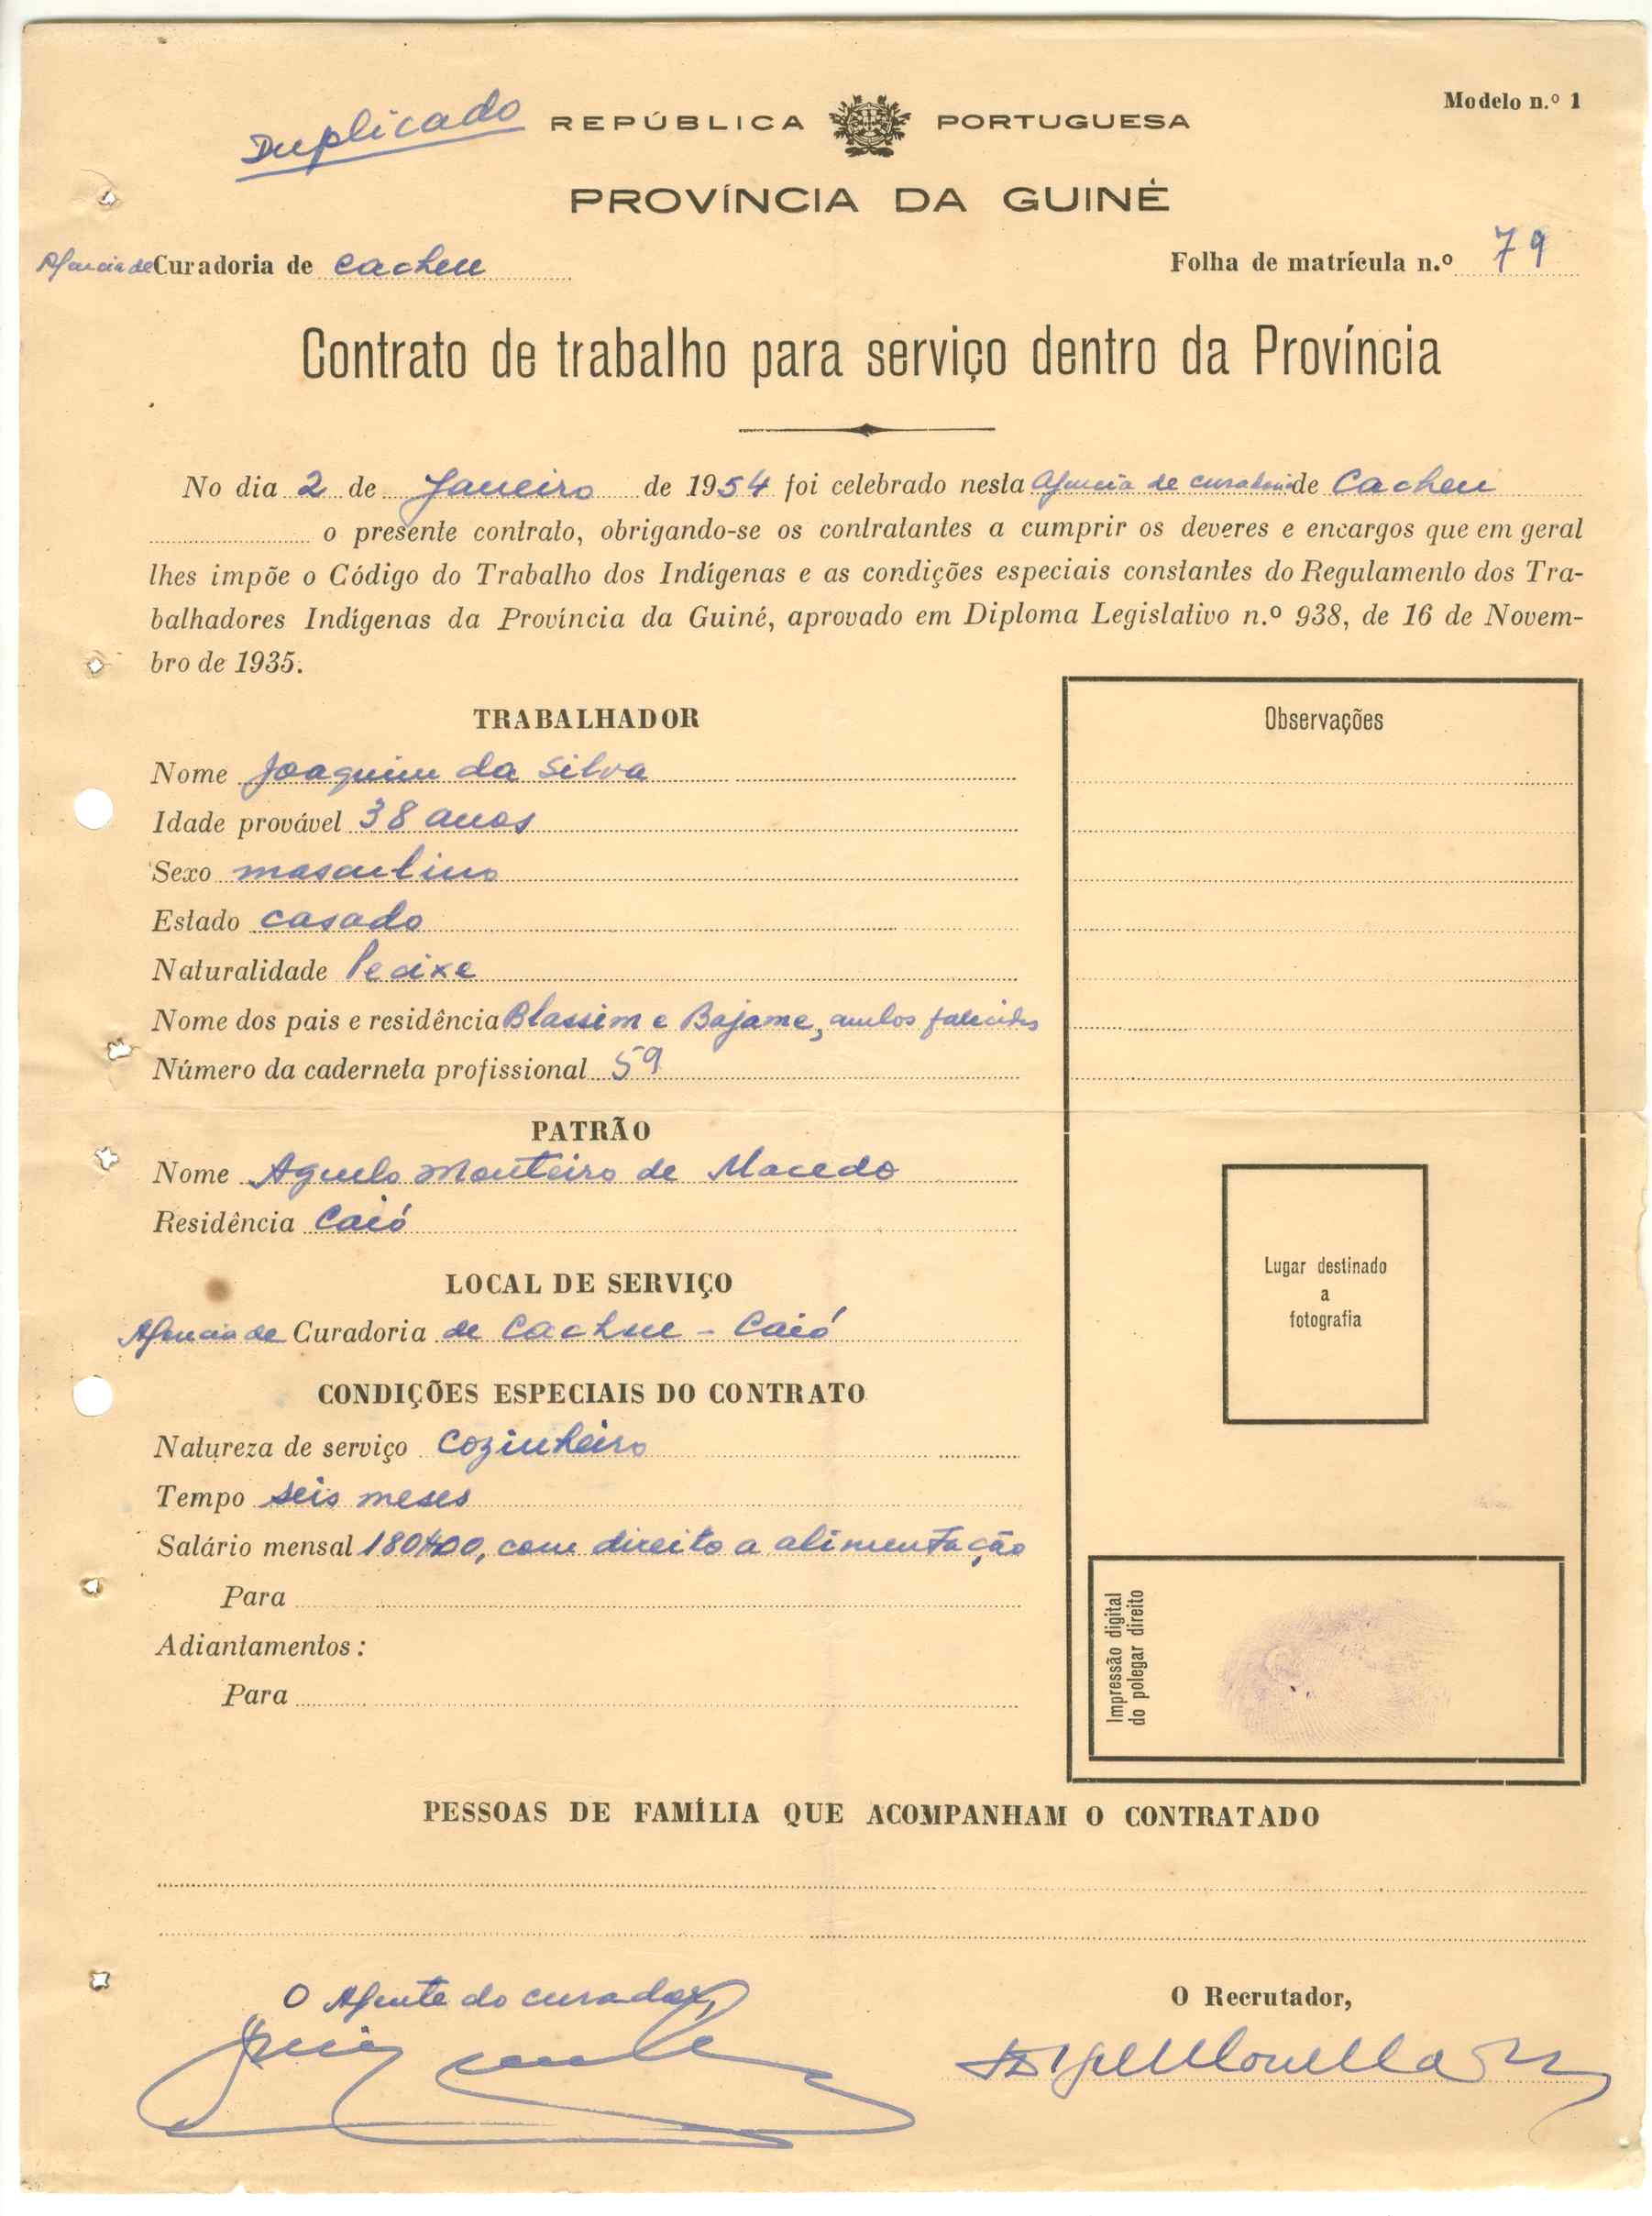 Duplicado
REPÚBLICA PORTUGUESA
Modelo n.º 1
PROVÍNCIA DA GUINÉ
Agencia de Curadoria de Cacheu
Folha de matrícula n.º 79
Contrato de trabalho para serviço dentro da Província
No dia 2 de Janeiro de 1954 foi celebrado nesta Agencia de curadoria de Cacheu
o presente contrato, obrigando-se os contratantes a cumprir os deveres e encargos que em geral
lhes impõe o Código do Trabalho dos Indígenas e as condições especiais constantes do Regulamento dos Tra-
balhadores Indígenas da Província da Guiné, aprovado em Diploma Legislativo n.º 938, de 16 de Novem-
bro de 1935.
TRABALHADOR
Nome Joaquim da Silva
Idade provável 38 anos
Sexo masculino
Estado casado
Naturalidade Pecixe
Nome dos pais e residência Blassim e Bajame, ambos falecidos
Número da caderneta profissional 59
PATRÃO
Nome Aguelo Monteiro de Macedo
Residência Caió
LOCAL DE SERVIÇO
Agencia de Curadoria de Cacheu - Caió
CONDIÇÕES ESPECIAIS DO CONTRATO
Natureza de serviço Cozinheiro
Tempo seis meses
Salário mensal 180$00, com direito a alimentação
Para
Adiantamentos:
Para
Observações
Lugar destinado
a
fotografia
Impressão digital
do polegar direito
PESSOAS DE FAMÍLIA QUE ACOMPANHAM O CONTRATADO
O Agente do curador,
O Recrutador,